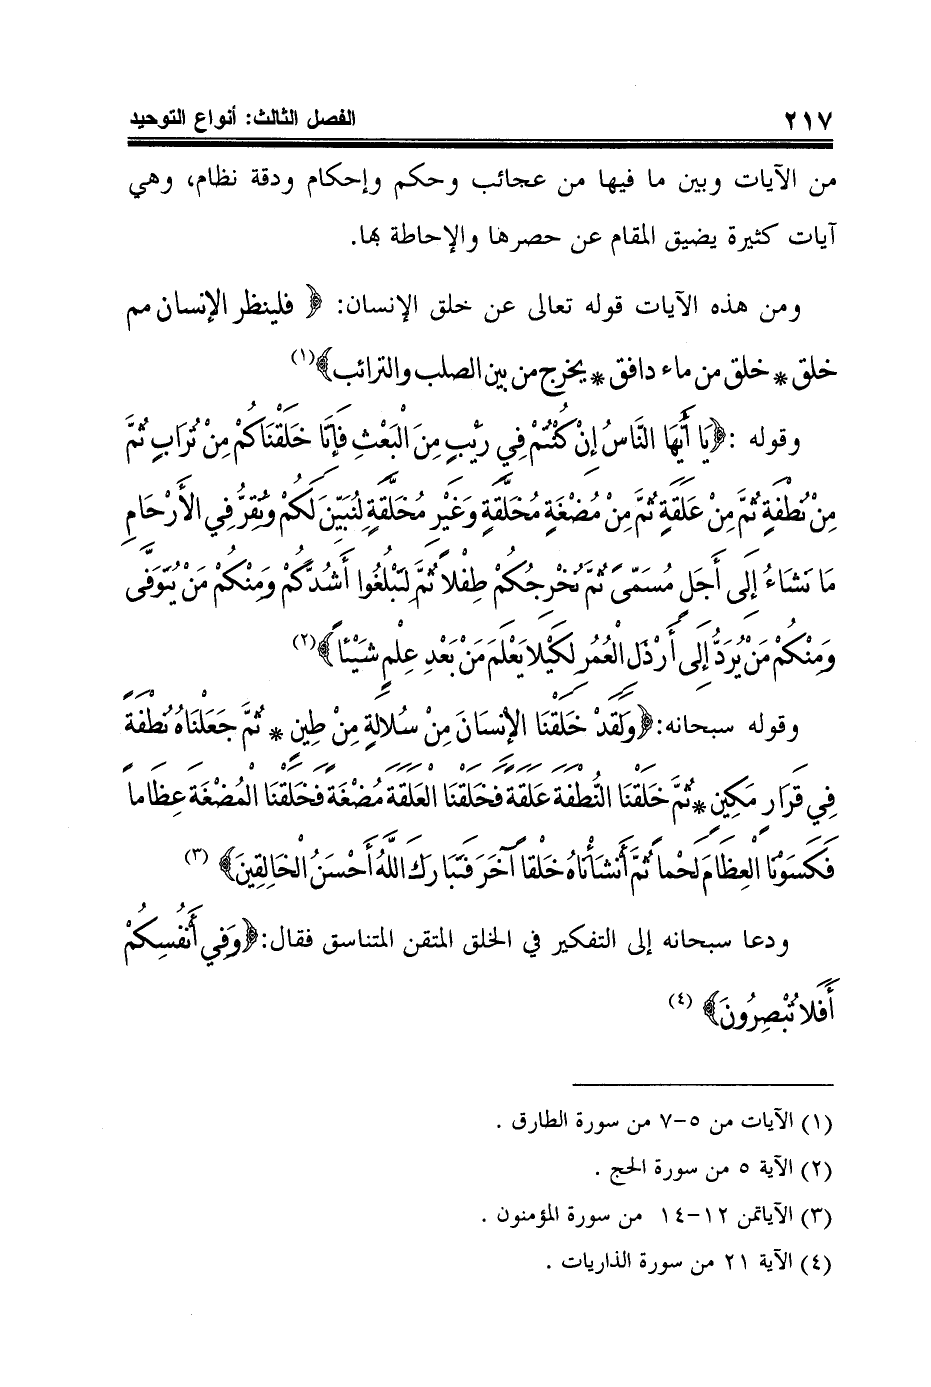 ٢١٧ الفصل الثالث: أنواع التوحيد
من الآيات وبين ما فيها من عجائب وحكم وإحكام ودقة نظام، وهي
آيات كثيرة يضيق المقام عن حصرها والإحاطة بها.
ومن هذه الآيات قوله تعالى عن خلق الإنسان: ﴿ فلينظر الإنسان مم
خلق * خلق من ماء دافق * يخرج من بين الصلب والترائب﴾(١)
وقوله :﴿يَا أَيُّهَا النَّاسُ إِنْ كُنْتُمْ فِي رَيْبٍ مِنَ الْبَعْثِ فَإِنَّا خَلَقْنَاكُمْ مِنْ تُرَابٍ ثُمَّ
مِنْ نُطْفَةٍ ثُمَّ مِنْ عَلَقَةٍ ثُمَّ مِنْ مُضْغَةٍ مُخَلَّقَةٍ وَغَيْرِ مُخَلَّقَةٍ لِنُبَيِّنَ لَكُمْ وَنُقِرُّ فِي الأَرْحَامِ
مَا نَشَاءُ إِلَى أَجَلٍ مُسَمّىً ثُمَّ نُخْرِجُكُمْ طِفْلاً ثُمَّ لِتَبْلُغُوا أَشُدَّكُمْ وَمِنْكُمْ مَنْ يُتَوَفَّى
وَمِنْكُمْ مَنْ يُرَدُّ إِلَى أَرْذَلِ الْعُمُرِ لِكَيْلا يَعْلَمَ مَنْ بَعْدِ عِلْمٍ شَيْئاً﴾(٢)
وقوله سبحانه:﴿وَلَقَدْ خَلَقْنَا الإِنسَانَ مِنْ سُلالَةٍ مِنْ طِينٍ * ثُمَّ جَعَلْنَاهُ نُطْفَةً
فِي قَرَارٍ مَكِينٍ * ثُمَّ خَلَقْنَا النُّطْفَةَ عَلَقَةً فَخَلَقْنَا الْعَلَقَةَ مُضْغَةً فَخَلَقْنَا الْمُضْغَةَ عِظَاماً
فَكَسَوْنَا الْعِظَامَ لَحْماً ثُمَّ أَنشَأْنَاهُ خَلْقاً آخَرَ فَتَبَارَكَ اللَّهُ أَحْسَنُ الْخَالِقِينَ﴾ (٣)
ودعا سبحانه إلى التفكير في الخلق المتقن المتناسق فقال:﴿وَفِي أَنفُسِكُمْ
أَفَلا تُبْصِرُونَ﴾ (٤)
(١) الآيات من ٥-٧ من سورة الطارق .
(٢) الآية ٥ من سورة الحج .
(٣) الآياتمن ١٢-١٤ من سورة المؤمنون .
(٤) الآية ٢١ من سورة الذاريات .